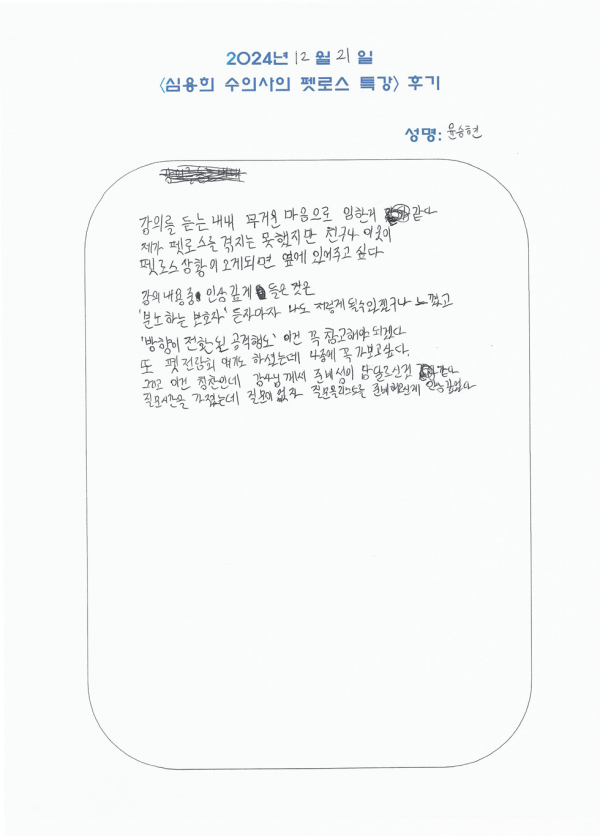 2024년 12월 21일
〈심용희 수의사의 펫로스 특강〉 후기
성명: 윤승현
강의를 듣는 내내 무거운 마음으로 임한거 같다
제가 펫로스를 겪지는 못했지만 친구나 이웃이
펫로스 상황이 오게되면 옆에 있어주고 싶다
강의 내용중 인상 깊게 들은 것은
'분노하는 보호자' 듣자마자 나도 저렇게 될수있겠구나 느꼈고
'방향이 전환된 공격행도' 이건 꼭 참고해야 되겠다
또 펫 전람회 얘기도 하셨는데 나중에 꼭 가보고싶다.
그리고 이건 칭찬인데 강사님께서 준비성이 남달르신것 같다
질문시간을 가졌는데 질문이 없자 질문리스트를 준비해오신게 인상깊었다